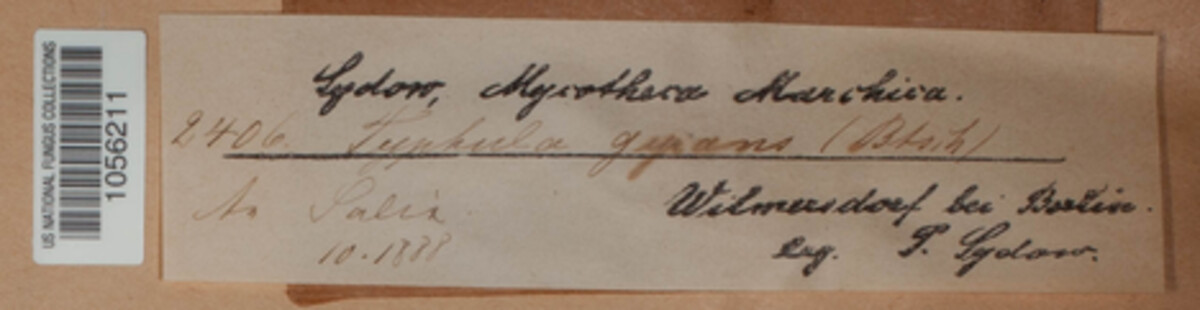 US NATIONAL FUNGUS COLLECTIONS
1056211
Sydow, Mycotheca Marchica.
2406. Typhula gyrans (Btsch)
An Salix
10.1888
Wilmersdorf bei Berlin.
Leg. P. Sydow.